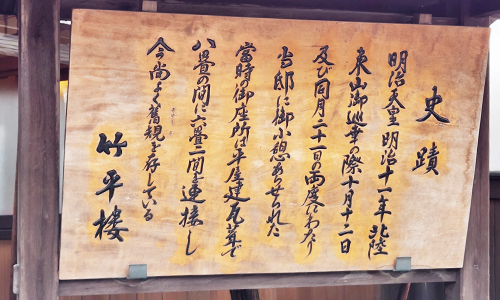 史蹟
明治天皇明治十一年北陸
東山御巡幸の際十月十二日
及び同月二十一日の両度にわたり
当邸に御小憩あらせられた
當時御座所は平屋建瓦葺で
八畳の間に六畳二間を連接し
今尚よく舊規を存している
竹平楼